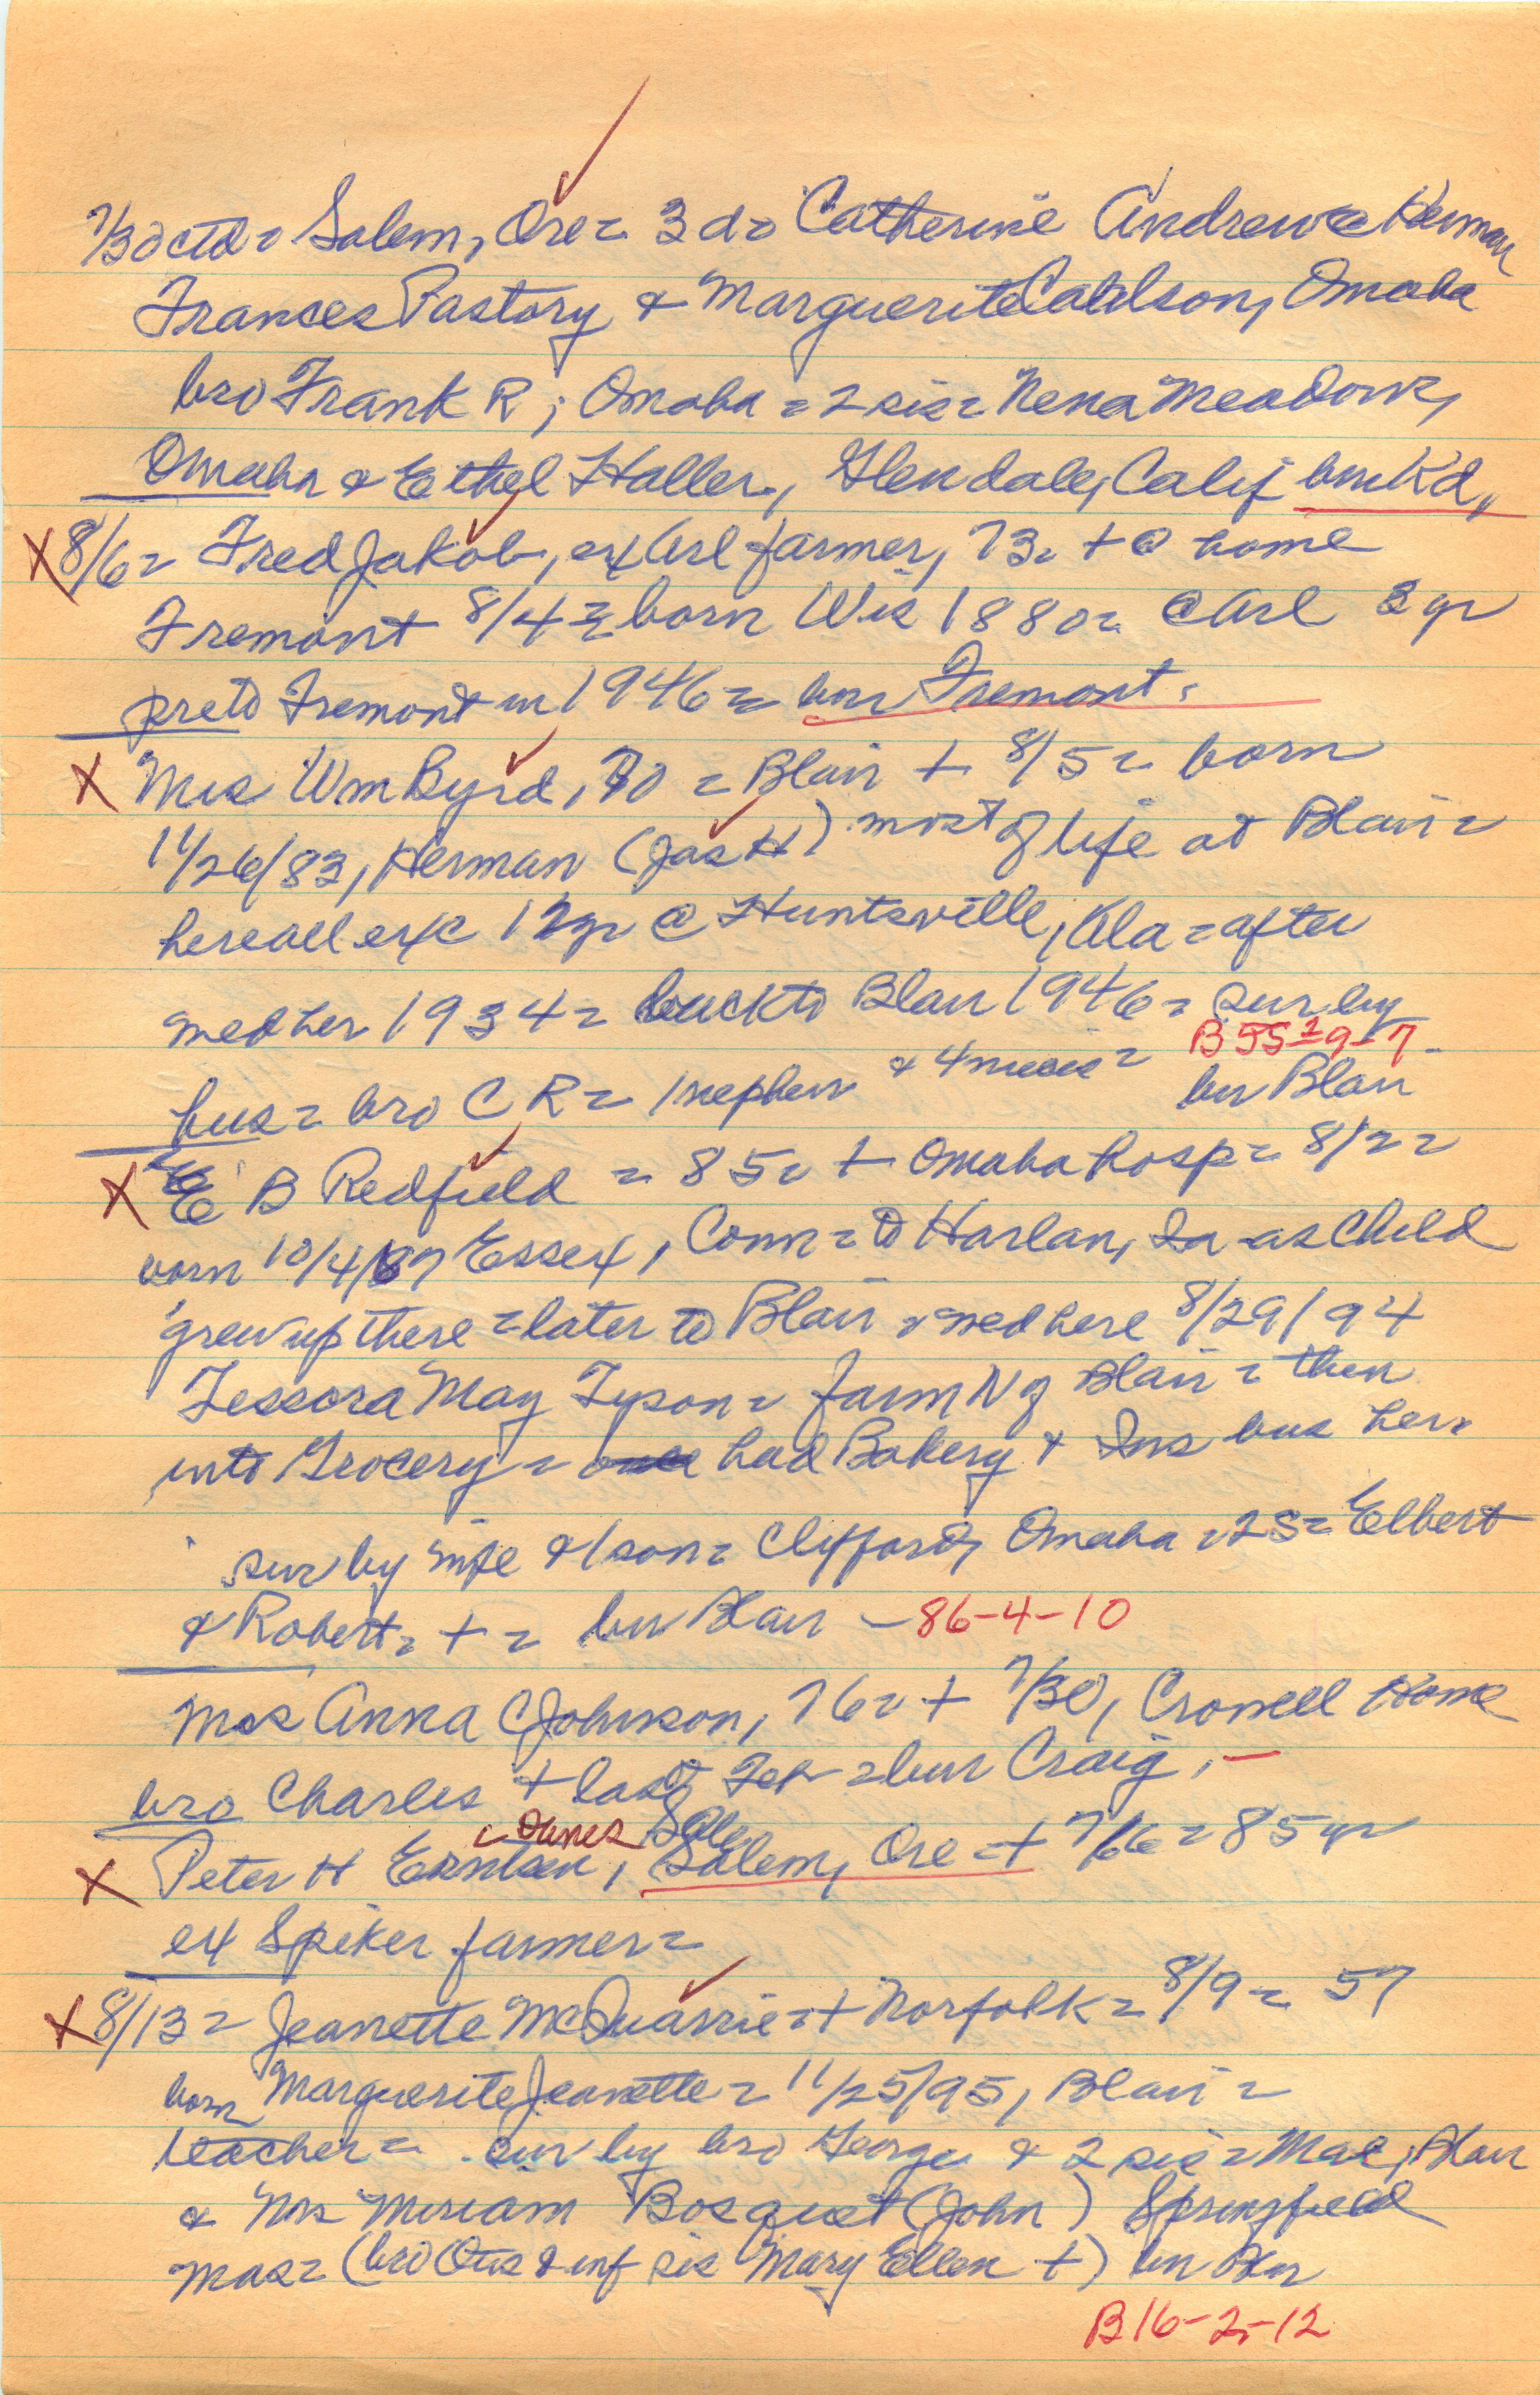 7/30 ctd = Salem, Ore = 3 d = Catherine Andrew @ Herman
Frances Pastory & Marguerite Omaha
bro Frank R; Omaha = 2 sis = Nena Meadows,
Omaha & Ethel Haller, Glendale, Calif bur K'd,
X 8/6 = Fred Jakob, ex Arl farmer, 73 = + @ home
Fremont 8/4 = born Wis 1880 = @ Arl 2 yr
to Fremont in 1946 = bur Fremont.
X Mrs Wm Byrd, 70 = Blair + 8/5 = born
11/26/83, Herman (Jas H) most of life at Blair =
here all exc 12 yr @ Huntsville, Ala = after
med her 1934 = back to Blair 1946 = sur by
B 55-2-9-7
hus = bro C R = 1 nephew & 4 nieces = bur Blair
X E B Redfield = 85 = + Omaha hosp = 8/2 =
born 10/4/67 Essex, Conn = to Harlan, Ia - as child
grew up there = later to Blair & med here 8/29/94
Tessora May Tyson = farm N of Blair = then
into Grocery = had Bakery & Ins bus here
sur by wife & 1 son = Clifford, Omaha = 2 S = Elbert
& Robert = + = bur Blair - 86-4-10
Mrs Anna C Johnson, 76 = + 7/30, Crowell Home
bro Charles + last Feb = bur Craig, -
James Sale
X Peter H Erntsen, Salem, Ore = + 7/6 = 85 yr
ex Spiker farmer =
X 8/13 = Jeanette McQuarrie = + Norfolk = 8/9 = 57
born Marguerite Jeanette = 11/25/95, Blair =
teacher = sur by bro George & 2 sis = Mae, Blair
& Mrs Miriam Bosquet (John) Springfield
Mas = (bro Otis & inf sis Mary Ellen +) bur Blair
B 16-2-12